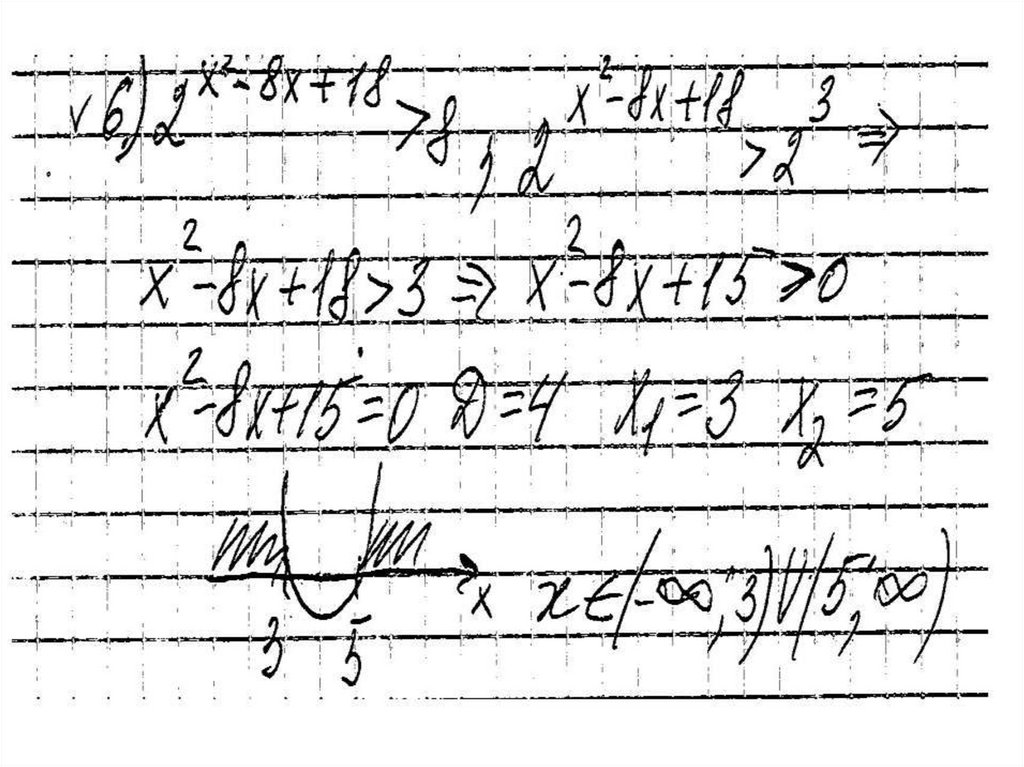 √ 6) 2^(x²-8x+18) > 8, 2^(x²-8x+18) > 2³ ⇒
x²-8x+18>3 ⇒ x²-8x+15>0
x²-8x+15=0 D=4 x₁=3 x₂=5
x
3 5
x∈(-∞;3)U(5;∞)